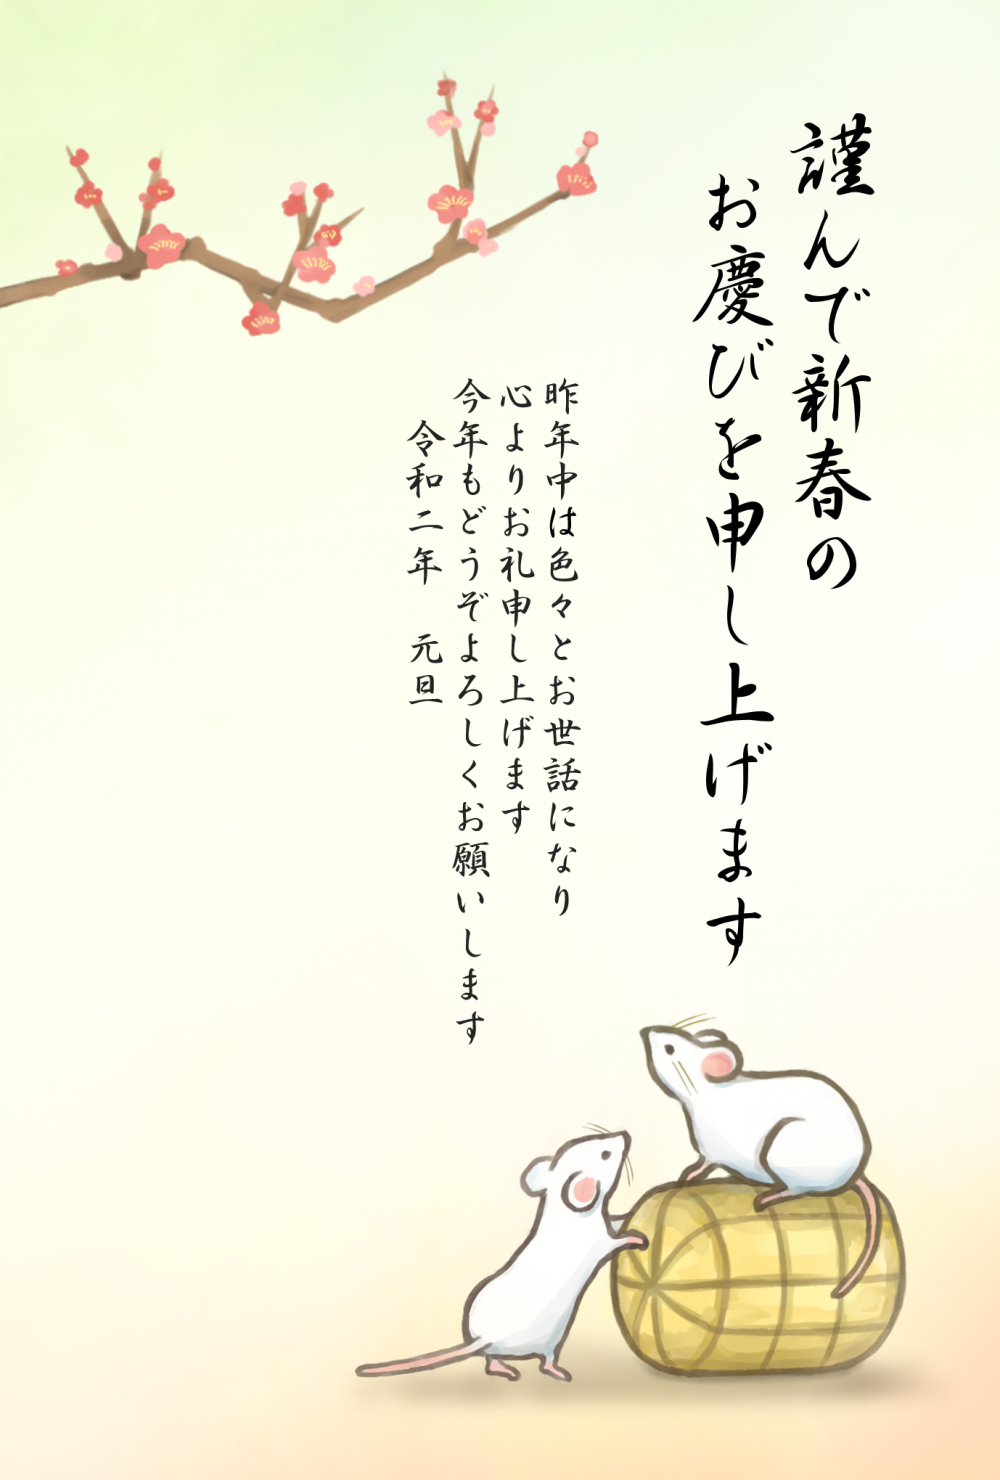 謹んで新春の
お慶びを申し上げます
昨年中は色々とお世話になり
心よりお礼申し上げます
今年もどうぞよろしくお願いします
令和二年　元旦